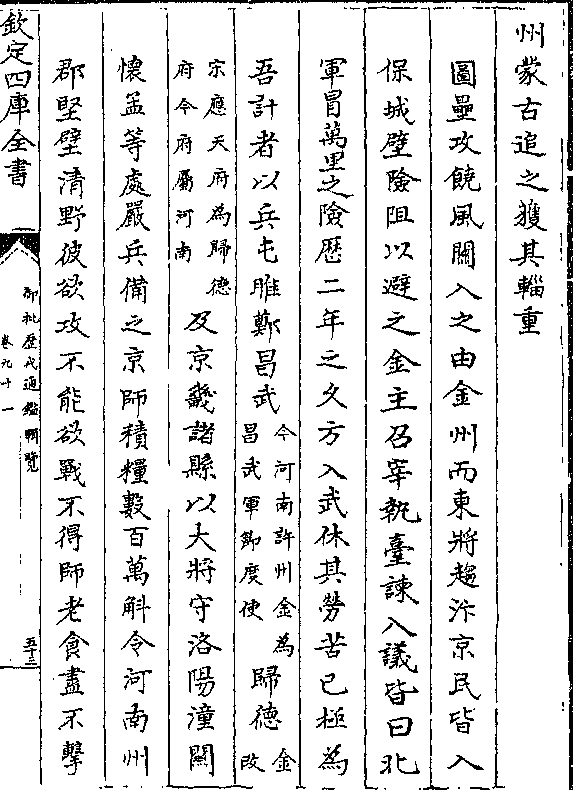 州蒙古追之獲其輜重
圖壘攻饒風關入之由金州而東將趨汴京民皆入
保城壁險阻以避之金主召宰執臺諫入議皆曰北
軍冒萬里之險歴二年之久方入武休其勞苦已極為
吾計者以兵屯睢鄭昌武今河南許州金為昌武軍節度使歸德金改
宋應天府為歸德府今府屬河南及京畿諸縣以大將守洛陽潼關
懷孟等處嚴兵備之京師積糧數百萬斛令河南州
郡堅壁清野彼欲攻不能欲戰不得師老食盡不擊
欽定四庫全書
御批歴代通鑑輯覽
卷九十一
五十三